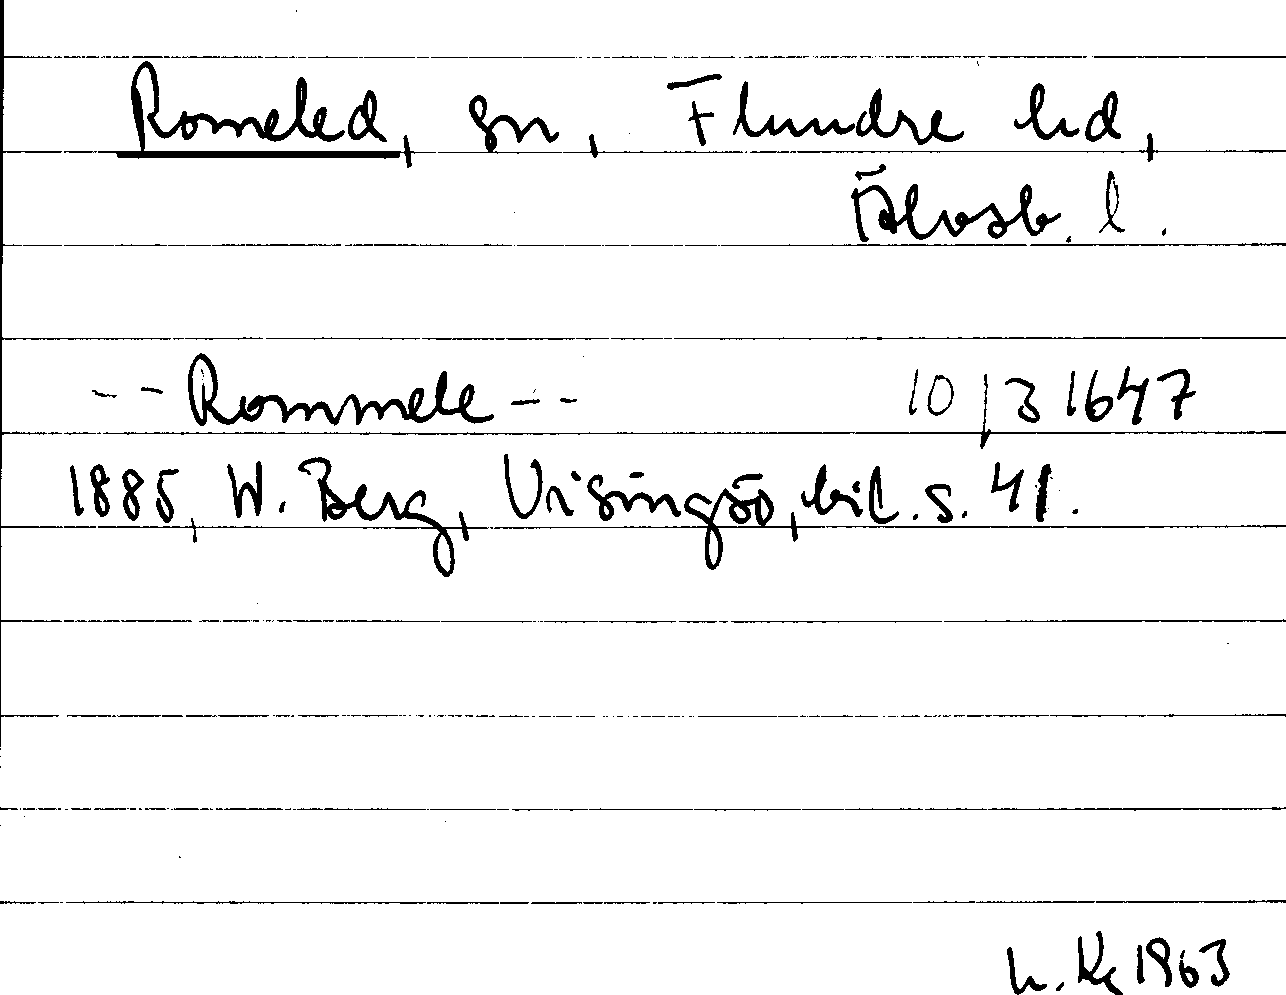 Romeled, sn, Flundre hd,
Älvsb. l.
-- Rommele -- 10/3 1647
1885, W. Berg, Visingsö, bil. s. 41.
1963